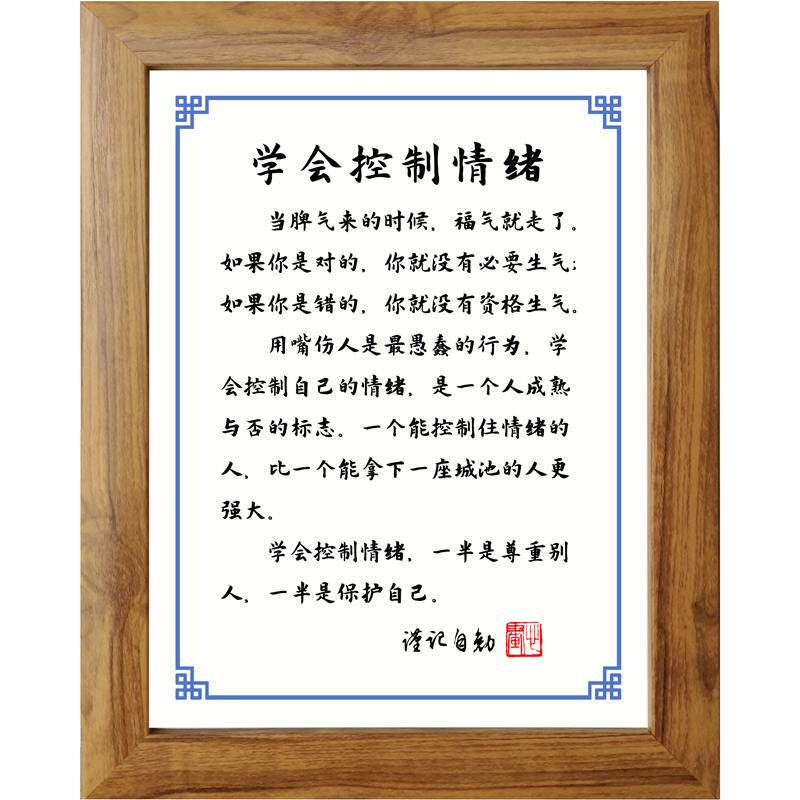 学会控制情绪
当脾气来的时候，福气就走了。
如果你是对的，你就没有必要生气；
如果你是错的，你就没有资格生气。
用嘴伤人是最愚蠢的行为，学
会控制自己的情绪，是一个人成熟
与否的标志。一个能控制住情绪的
人，比一个能拿下一座城池的人更
强大。
学会控制情绪，一半是尊重别
人，一半是保护自己。
谨记自勉